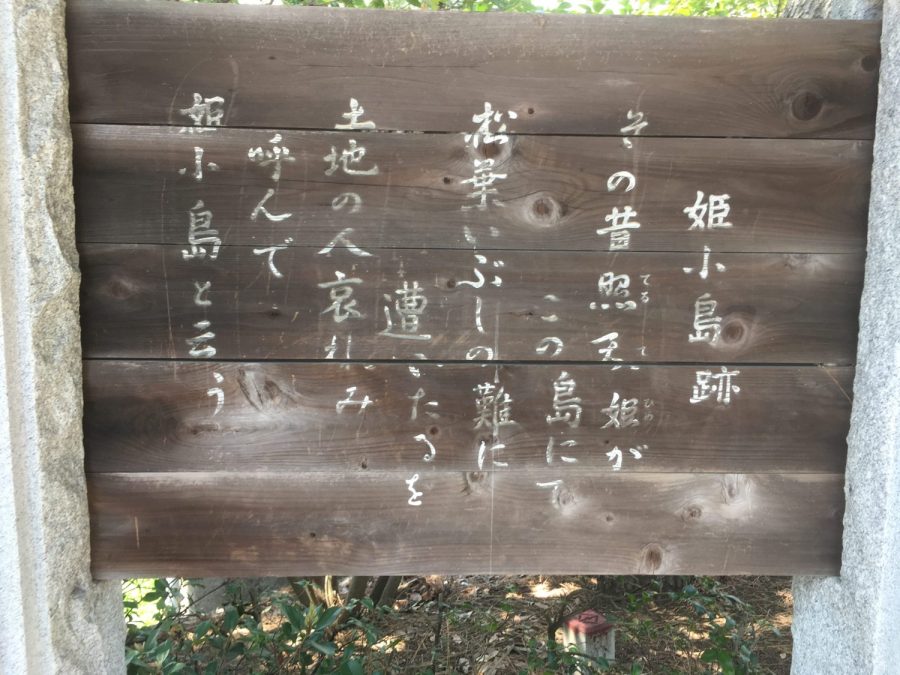 姫小島跡
その昔照天姫が
てる て ひめ
この島にて
松葉いぶしの難に
遭いたるを
土地の人哀れみ
呼んで
姫小島と云う